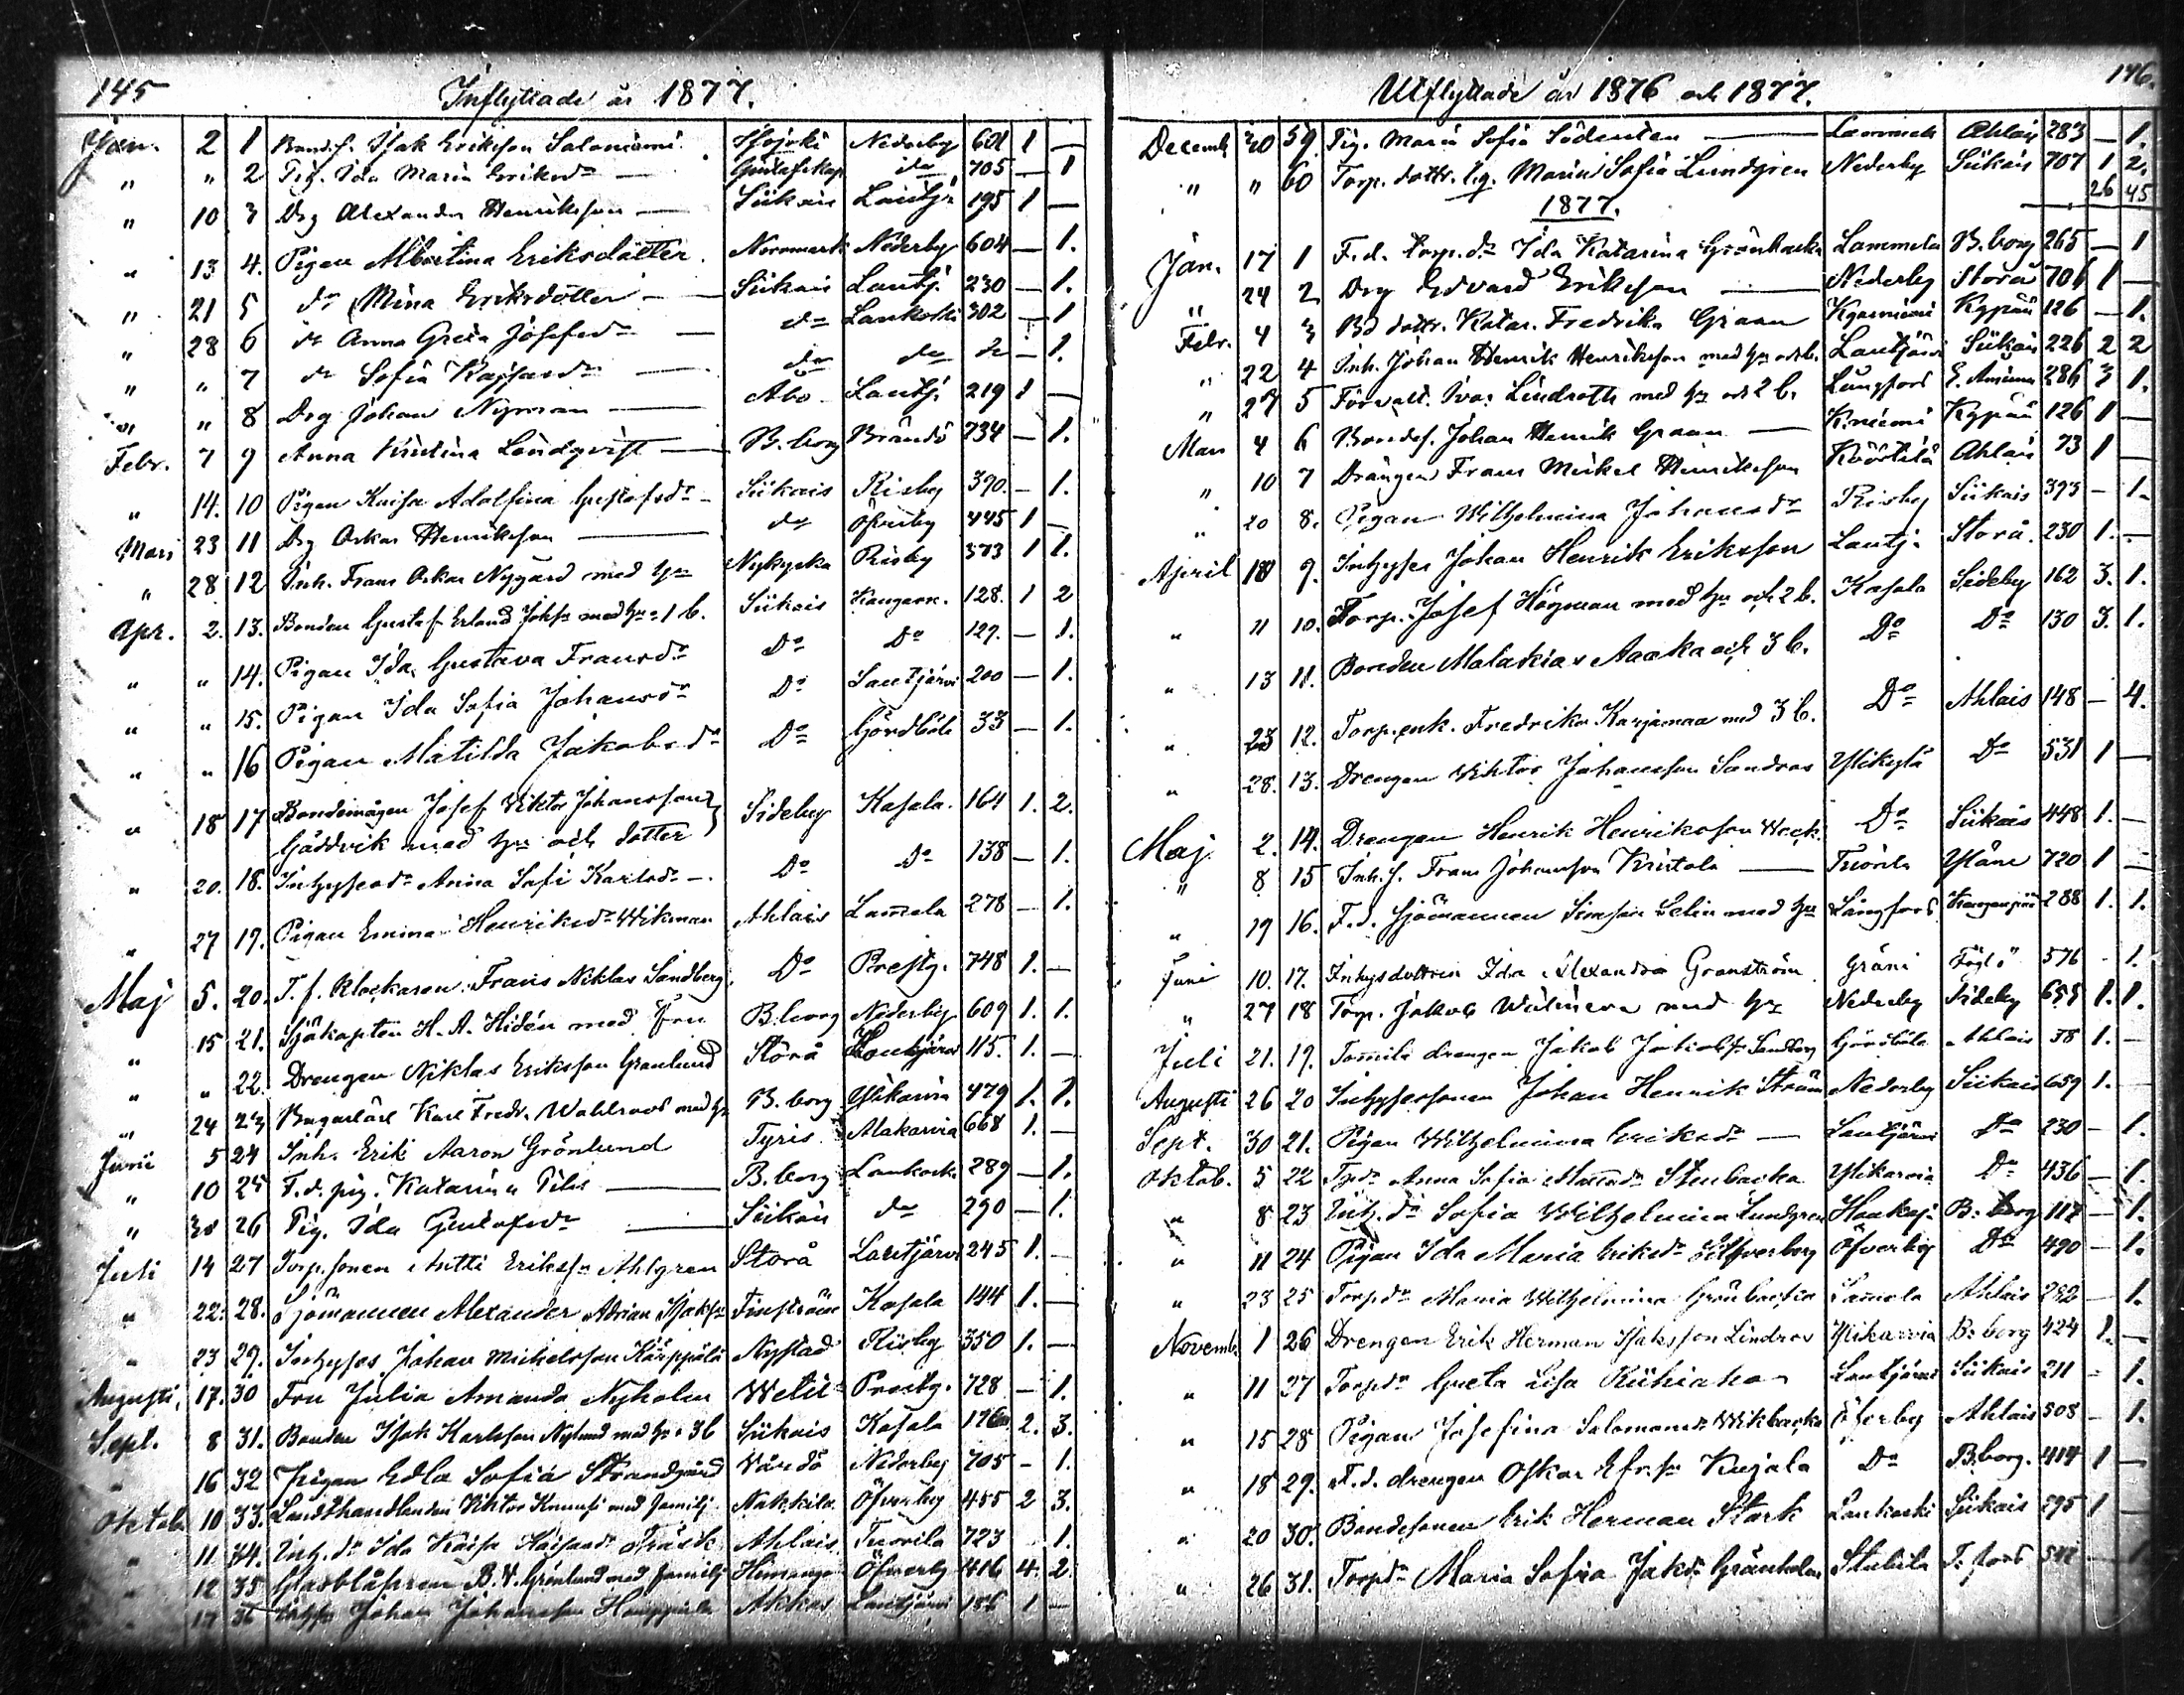 145
Inflyttade år 1877.
Jan. 2 1 Bondes. Isak Eriksson Saloniemi. Nederby 601 1 —
" " 2 Pig. Ida Maria Eriksdr — Gustafskap do 705 — 1
" 10 3 Drg Alexander Henriksson — Siikais Lautjr 195 1 —
" 13 4. Pigan Albertina Eriksdotter. Norrmark Nederby 604 — 1.
" 21 5 do Mina Eriksdotter — Siikais Lautj. 230 — 1.
" 28 6 dr Anna Greta Josefsdr — do Lankoski 302 — 1
" " 7 dr Sofia Kajsasdr — do do do — 1.
" " 8 Drg Johan Nyman — Åbo Lautj. 219 1 —
Febr. 7 9 Anna Kristina Londqvist — B.borg Brändö 734 — 1.
" 14. 10 Pigan Kaisa Adolfina Gustafsdr — Siikais Risby 390. — 1.
Mars 23 11 Drg Oskar Henriksson — do Öfverby 445 1 —
" 28 12 Inh. Frans Oskar Nygård med hu Nykyrka Risby 373 1 1.
Apr. 2. 13. Bonden Gustaf Erland Johss med hu o 1 b. Siikais Kangasn. 128. 1 2
" " 14. Pigan Ida Gustava Fransdr Do Do 127. — 1.
" " 15. Pigan Ida Sofia Johansdr Do Lautjärvi 200 — 1.
" " 16 Pigan Matilda Jakobsdr Do Gördböle 33 — 1.
" 18 17 Bondemågen Josef Viktor Johansson Sideby Kasala. 164 1. 2.
Gäddvik med hu och dotter
" 20. 18. Inhysesdr Anna Sofi Karlsdr —. Do Do 138 — 1.
" 27 19. Pigan Emma Henriksdr Wikman Ahlais Lamela 278 — 1.
Maj 5. 20. T. f. Klockaren Frans Niklas Sandberg. Do Prestg. 748 1. —
" 15 21. Sjökapten H. A. Hidén med fru B.borg Nederby 609 1. 1.
" " 22. Drengen Niklas Eriksson Granlund Storå 115. 1. —
" 24 23 Bagarlärl Karl Fredr. Wahlroos med hu B. borg Yttikarvia 479 1. 1.
Junii 5 24 Inh. Erik Aaron Grönlund Tyris Alakarvia 668 1. —
" 10 25 F.d. pig. Katarina — B. borg Lankosk. 289 — 1.
" 30 26 Pig. Ida Gustafsdr — Siikais do 290 — 1.
Juli 14 27 Torp.sonen Antti Erikss Ahlgren Storå Lautjärvi 245 1. —
" 22. 28. Sjömannen Alexander Adrian Isakss Finström Kasala 144 1. —
" 23 29. Inhyses Johan Mickelsson Kärppälä Nystad Risby 350 1. —
Augusti, 17. 30 Fru Julia Amanda Nyholm Prestg. 728 — 1.
Sept. 8 31. Bonden Isak Karlsson Nylund med hu o 3 b Siikais Kasala 2. 3.
" 16 32 Pigan Edla Sofia Strandgård Vårdö Nederby 705 — 1.
Oktob 10 33. Landthandlanden Viktor med familj Nakkila Öfverby 455 2 3.
" 11 34. Inh. dr Ida Kaisa Träsk Ahlais Tuorila 723 1.
" 12 35 Glasblåsaren B. V. Grönlund med familj Himango Öfverby 416 4. 2.
" 17 36 Johan Johansson Lautjärvi 186 1 —
146.
Utflyttade år 1876 och 1877.
Decemb 20 59. Pig. Maria Sofia Södersten — Lammela Ahlais 283 — 1.
" " 60 Torp. dottr. lg. Maria Sofia Lundgren Nederby Siikais 707 1 2.
26 45
1877.
Jan. 17 1 F.d. torp.dr Ida Katarina Grönbacka Lammela B.borg 265 — 1
" 24 2 Drg Edvard Eriksson — Nederby Storå 706 1 —
Febr. 4 3 Bd dottr. Katar. Fredrika Graan 126 — 1.
" 22 4 Inh. Johan Henrik Henriksson med hu och b. Lautjärvi Siikais 226 2 2
" 27 5 Förvalt. Ivar Lindroth med hu och 2 b. Långfors 286 3 1.
Mars 4 6 Bondes. Johan Henrik Graan — 126 1 —
" 10 7 Drängen Frans Mickel Henriksson Ahlais 73 1 —
" 20 8. Pigan Wilhelmina Johansdr Risby Siikais 393 — 1.
April 18 9. Inhyses Johan Henrik Eriksson Lautj. Storå. 230 1. —
" 11 10. Torp. Josef Högman med hu och 2 b. Kasala Sideby 162 3. 1.
" 13 11. Bonden Malakias Aaoka och 3 b. Do Do 130 3. 1.
" 23 12. Torp.enk. Fredrika Karjamaa med 3 b. Do Ahlais 148 — 4.
" 28. 13. Drengen Viktor Johansson Sandros Yttikylä Do 531 1 —
Maj 2. 14. Drengen Henrik Henriksson Weck. Do Siikais 448 1. —
" 8 15 Inh. s. Frans Johansson Kristola — Tuorila Yläne 720 1 —
" 19 16. F.d. Sjömannen Simson Lelin med hu Långfors 288 1. 1.
Juni 10. 17. Inhysdottren Ida Alexandra Granström Gräni Föglö 576 - 1.
" 27 18 Torp. Jakob med hu Nederby Sideby 655 1. 1.
Juli 21. 19. drengen Jakob Jakobss Sandberg Gördböle Ahlais 38 1. —
Augusti 26 20 Inhysessonen Johan Henrik Ström Nederby Siikais 659 1. —
Sept. 30 21. Pigan Wilhelmina Eriksdr — Lautjärvi Do 230 — 1.
Oktob. 5 22 Anna Sofia Stenbacka Yttikarvia Do 436 — 1.
" 8 23 Inh. dr Sofia Wilhelmina Lundgren B: borg 117 — 1.
" 11 24 Pigan Ida Maria Eriksdr Silfverberg Öfverby Do 490 — 1.
" 23 25 Torpdr Maria Wilhelmina Grönbacka Lamela Ahlais 282 — 1.
Novemb. 1 26 Drengen Erik Herman Isaksson Lindros Yttikarvia B: borg 424 1. —
" 11 27 Torpdr Greta Lisa Lautjärvi Siikais 211 - 1.
" 15 28 Pigan Josefina Salomonsdr Wikbacka Öfverby Ahlais 505 — 1.
" 18 29. F. d. drengen Oskar Kujala Do B.borg. 414 1 —
" 20 30. Bondesonen Erik Herman Stark Lankoski Siikais 295 1 —
" 26 31. Torpdr Maria Sofia Jaksdr Gränholm